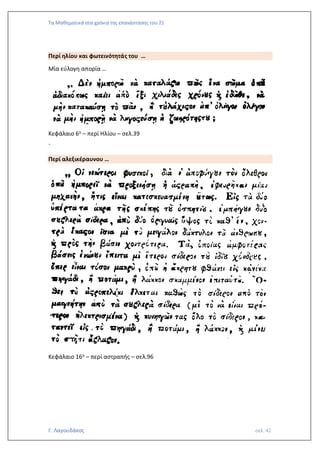 Τα Μαθηματικά στα χρόνια της επανάστασης του 21
Περί ηλίου και φωτεινότητάς του …
Μία εύλογη απορία …
„ Δὲν ἠμπορῶ νὰ καταλάβω πῶς ἕνα σῶμα ὁποῦ
ἀδιακόπως καίει ἀπὸ ἕξι χιλιάδες χρόνους ἢ ἐδῶθε, νὰ
μὴν κατακαύσῃ τὸ πᾶν, ἢ τοὐλάχιςον ἀπ' ὀλίγον ὀλίγον
νὰ μὴν ἠμπορῇ νὰ λιγοςεύσῃ ἡ ζωηρότης του;
Κεφάλαιο 6ο – περί Ηλίου – σελ.39
.
Περί αλεξικέραυνου …
„ Οἱ νεώτεροι φυσικοὶ, διὰ ν' ἀποφύγουν τὸν ὄλεθρον
ὁποῦ ἠμπορεῖ νὰ προξενήσῃ ἡ ἀςραπὴ, ἐφευρῆκαν μίαν
μηχανὴν, ἥτις εἶναι κατεσκευασμένη οὕτως. Εἰς τὰ δύο
ὑπέρτατα ἄκρα τῆς σκέπης τοῦ ὁσπητίου, ἐμπήγουν δύο
σουβλερὰ σίδερα, ἀπὸ δύο ὀργυιαῖς ὕψος τὸ καθ' ἕν, χον-
τρὰ ἕκαςον ἴσια μὲ τὸ μεγάλον δάκτυλον τοῦ ἀνθρώπου,
ἢ πρὸς τὴν βάσιν χοντρότερα. Τὰς ὁποίας ἀμφοτέρας
βάσεις ἑνώνουν ἔπειτα μὲ ἕτερον σίδερον τοῦ ἰδίου χόνδρους,
ὅπερ εἶναι τόσον μακρὺ, ὁποῦ ἡ ἄκρητου φθάνει εἰς κανένα
πηγάδι, ἢ ποτάμι, ἢ λάκκον σκαμμένον ἐπιταυτοῦ. Ὅ-
θεν τὸ ἀςροπελέκι ἕλκεται καθὼς τὸ σίδερον ἀπὸ τὸν
μαγνήτην ἀπὸ τὰ σουβλερὰ σίδερα (μὲ τὸ νὰ εἶναι πρό-
τερον ἠλεκτρισμένα) ἢ κυνηγῶντας ὅλο τὸ σίδερον, κα-
ταντεῖ εἰς τὸ πηγάδι, ἢ ποτάμι, ἢ λάκκον, ἢ μένει
τὸ σπῆτι ἄβλαβον.
Κεφάλαιο 16ο – περί αστραπής – σελ.96
Γ. Λαγουδάκος
σελ. 42